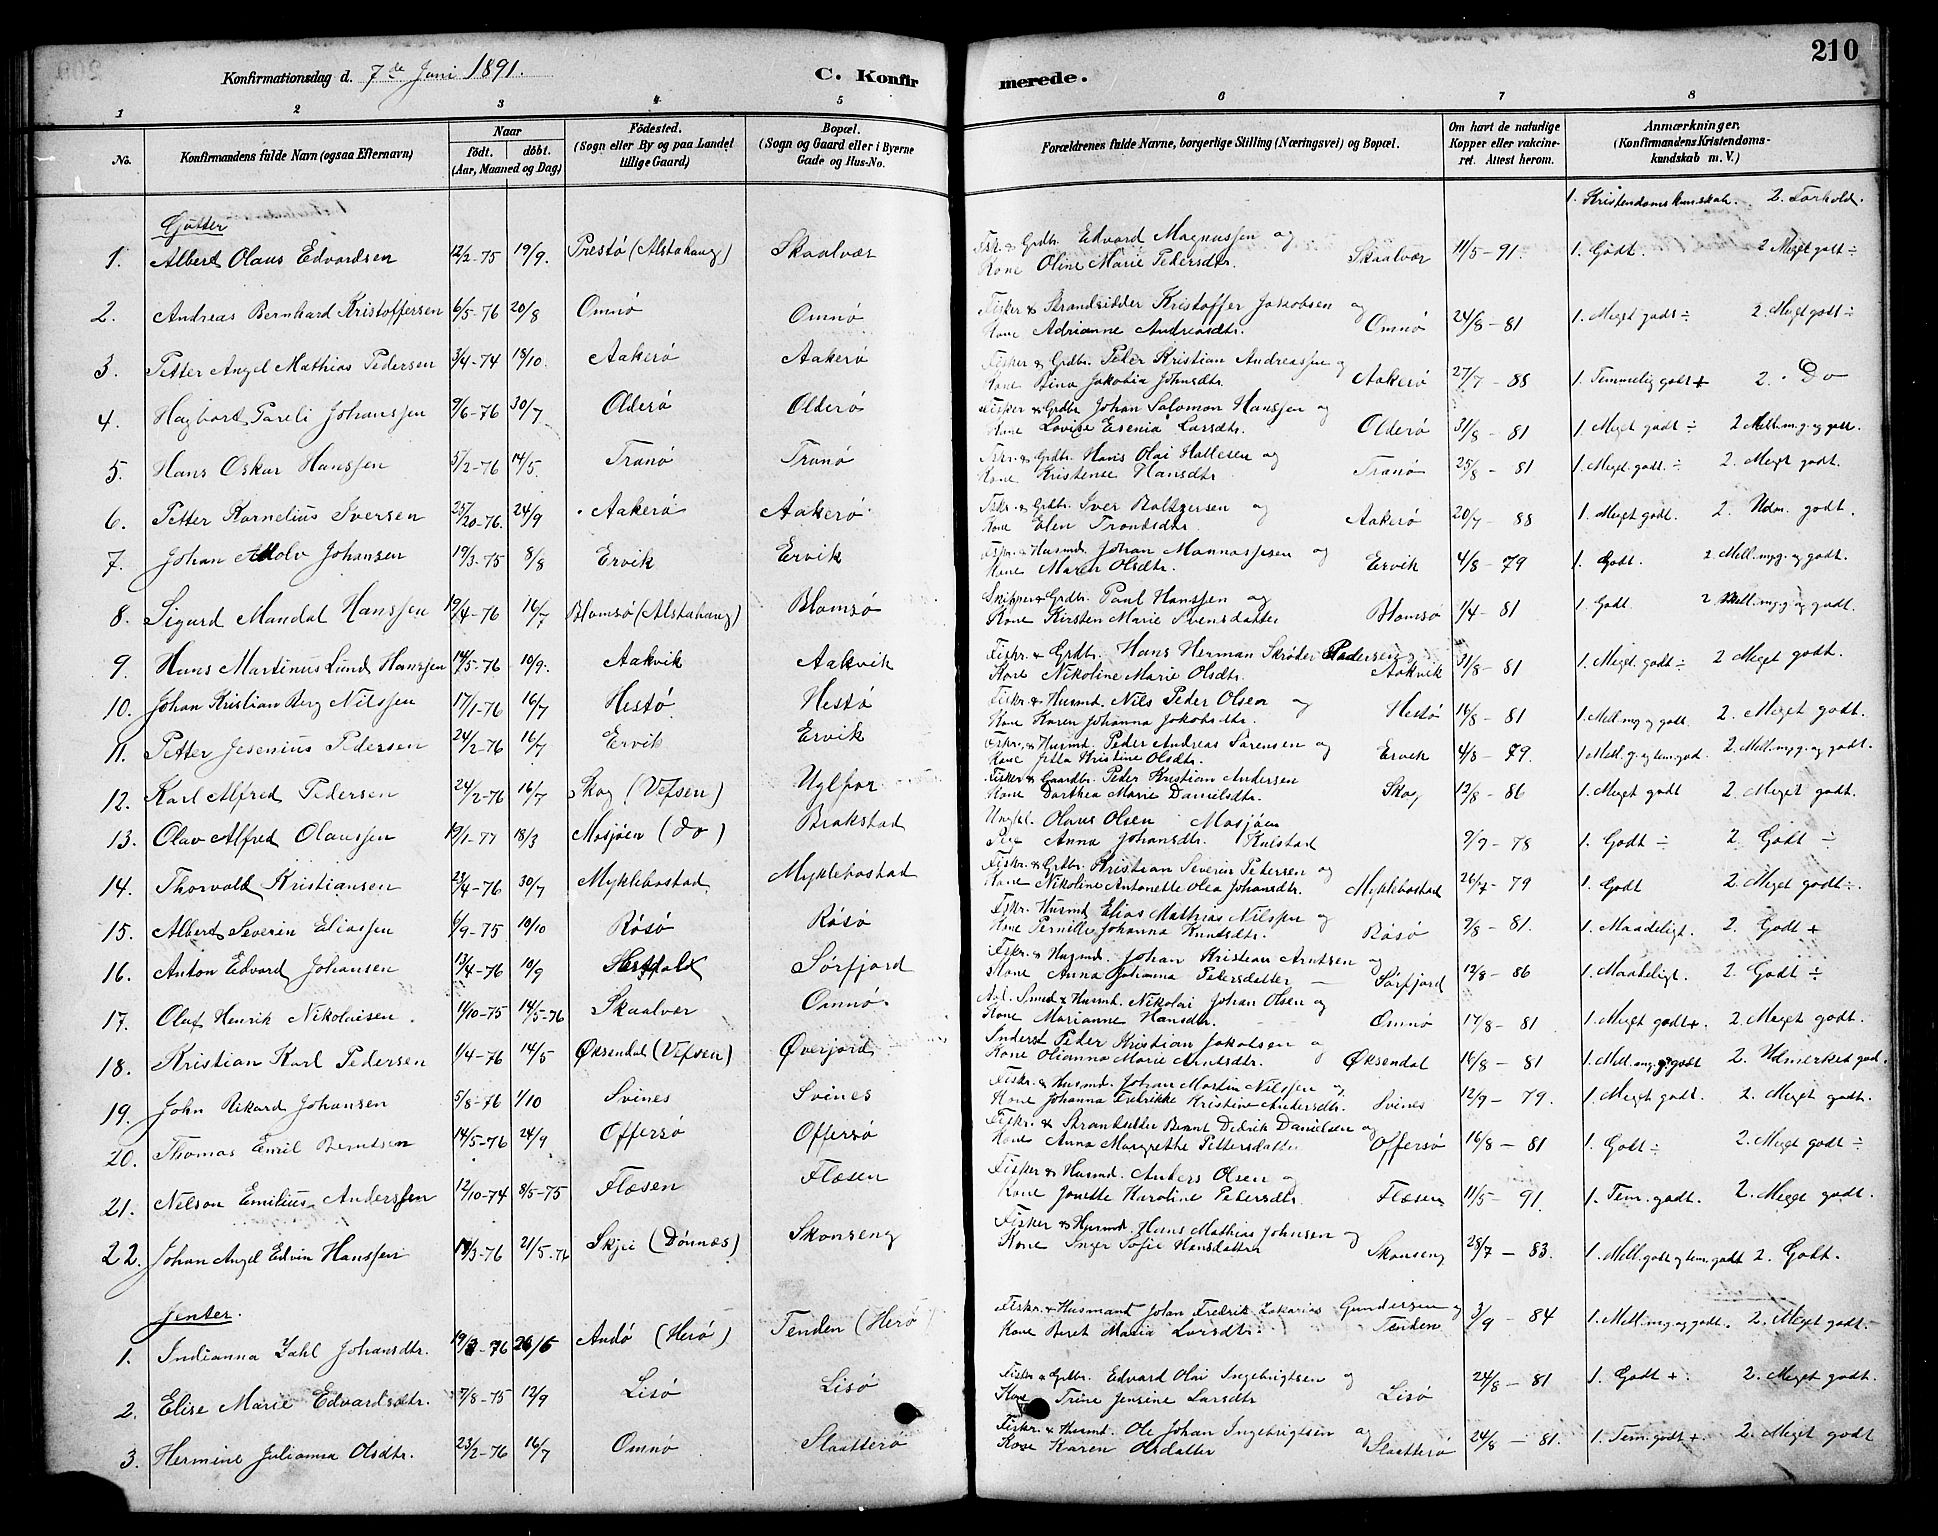 210
Konfirmationsdag d. 7de Juni 1891. C. Konfirmerede.
1 2 3 4 5 6 7 8
No. Konfirmandens fulde Navn (ogsaa Efternavn) Naar født. døbt. (Aar, Maaned og Dag) Födested. (Sogn eller By og paa Landet tillige Gaard) Bopæl. (Sogn og Gaard eller i Byerne Gade og Hus-No. Forældrenes fulde Navne, borgerlige Stilling (Næringsvei) og Bopæl. Om havt de naturlige Kopper eller vakcineret. Attest herom. Anmærkninger, (Konfirmandens Kristendomskundskab m. V.)
1. Kristendomskunskab. 2. Forhold.
Gutter
1. Albert Olaus Edvardsen 12/2-75 19/9. Prestø (Alstahaug) Skaalvær Fisk. & Grdbr. Edvard Magnussen og Kone Oline Marie Pedersdtr. Skaalvær 11/5-91. 1. Godt. 2 Meget godt ÷
2. Andreas Bernhard Kristoffersen 6/5-76 20/8 Omnø Omnø Fisker & Strandsidder Kristoffer Jakobsen og Kone Adrianne Andreasdtr. Omnø 24/8-81 1. Meget godt ÷ 2. Meget godt ÷
3. Petter Angel Mathias Pedersen 3/4-74 18/10. Aakerø Aakerø Fisker & Grdbr. Peder Kristian Andreassen og Kone Bina Jakobia Johnsdtr. Aakerø 27/7-88 1. Temmelig godt + 2. Do
4. Hagbart Pareli Johanssen 9/6-76 30/7 Olderø Olderø Fisker & Grdbr. Johan Salomon Hanssen og Kone Lovise Esenia Larsdtr. Olderø 31/8-81 1. Meget godt ÷ 2 Mell. m.g. og godt
5. Hans Oskar Hanssen 5/2-76 14/5. Tranø Tranø Fiskr. & Grdbr. Hans Olai Hallesen og Kone Kristense Hansdtr. Tranø 25/8-81 1. Meget godt. ÷ 2. Meget godt.
6. Petter Kornelius Iversen 25/20-76. 24/9 Aakerø Aakerø Fiskr. & Grdbr. Iver Baltzersen og Kone Elen Trondsdtr. Aakerø 20/7-88 1. Meget godt. 2. Udm. godt.
7. Johan Adolv Johansen 19/3-75 8/8 Ervik Ervik Fiskr. & Husmd. Johan Mannassesen og Kone Maren Olsdtr. Ervik 4/8-79 1. Godt. 2. Mell. myg. og godt.
8. Sigurd Mandal Hanssen 19/4-76 16/7 Blomsø (Alstahaug) Blomsø Skipper & Grdbr. Paul Hanssen og Kone Kirsten Marie Svensdatter Blomsø 1/4-81 1. Godt 2 Mell. myg. og godt.
9. Hans Martinus Lund Hanssen 14/5-76 10/9. Aakvik Aakvik Fiskr. & Grdbr. Hans Herman Skrøder Pedersen og Kone Nikoline Marie Olsdtr. Aakvik 31/8-81 1. Meget. godt ÷ 2 Meget godt.
10. Johan Kristian Berg Nilssen 17/1-76 16/7 Hestø. Hestø Fiskr. & Husmd. Nils Peder Olsen og Kone Karen Johanna Jakobsdtr. Hestø 16/8-81 1. Mell. mg og godt. 2. Meget godt.
11. Petter Jesenius Pedersen 24/2-76 16/7 Ervik Ervik Fiskr. & Husmd. Peder Andreas Sørensen og Kone Jetta Kristine Olsdtr. Ervik 4/8-79. 1. Mell. g. og tem. god. 2. Mell. myg. og godt.
12. Karl Alfred Pedersen 24/2-76 16/7 Skog (Vefsen) Fisker & Gaardbr. Peder Kristian Andersen Kone Dorthea Marie Danielsdtr. Skog 12/8-86 1. Meget godt 2. Meget godt.
13. Olav Alfred Olaussen 19/1-77 18/3 Mosjøen (do) Brakstad Ungkl. Olaus Olsen Mosjøen Pige Anna Johansdtr. 9/9-78 1. Godt ÷ 2. Godt ÷
14. Thorvald Kristiansen 23/4-76 30/7 Myklebostad. Myklebostad Fiskr. & Grdbr. Kristian Severin Petersen og Kone Nikoline Antonette Olea Johansdtr. Myklebostad 26/7-79 1. Godt 2. Meget godt ÷.
15. Albert Severin Eliassen 6/9-75 10/10 Røsø Røsø Fiskr. Husmd. Elias Mathias Nilssen og Kone Pernille Johanna Knudsdtr. Røsø 9/8-81. 1. Maadeligt. 2. Godt +
16. Anton Edvard Johansen 13/4-76 10/9 Sørfjord Fiskr. & Husmd. Johan Kristian Arntsen og Kone Anna Johanna Pedersdatter Sørfjord 12/8-86 1. Maadeligt 2. Godt ÷
17. Oluf Henrik Nikolaisen. 11/10-75 14/5-76 Skaalvær Omnø Smed & Husmd. Nikolai Johan Olsen og Kone Marianne Hansdtr. Omnø 17/8-81 1. Meget godt +. 2. Meget godt.
18. Kristian Karl Pedersen 1/4-76 14/5 Øksendal (Vefsen) Øverjord Inderst Peder Kristian Jakobsen og Kone Olianna Marie Arntsdtr. Øksendal 16/8-81 1. Mell. mg. og godt 2. Udmerket god.
19. John Rikard Johansen 5/8-76 1/10 Svines Svines Fiskr. & Husmd. Johan Martin Nilssen og Kone Johanna Fredrikke Kristine Andersdtr. Svines 12/9-79. 1. Meget godt. 2. Meget godt.
20. Thomas Emil Berntsen 14/5-76 24/9 Offersø Offersø Fiskr. & Strandsidder Bernt Didrik Danielsen og Kone Anna Margrethe Pettersdatter Offersø 16/8-81 1. Godt ÷ 2. Meget godt ÷
21. Nilson Emilius Anderssen 12/10-74 8/5-75 Flæsen Flæsen Fisker & Husmd. Anders Olsen og Kone Jonette Karoline Pedersdtr. Flæsen 11/5-91. 1. Tem. godt. 2. Meget godt.
22. Johan Angel Edvin Hanssen /3-76 21/5-76 Skjei (Dønnes) Skonseng Fisker & Husmd. Hans Mathias Johnsen og Kone Inger Sofie Hansdatter Skonseng 28/7-83. 1. Mell. godt og tem. godt 2. Godt.
Jenter.
1. Indianna Zahl Johansdtr. 19/3-76 26/6 Andø (Herø) Tenden (Herø) Fiskr. & Husmand Johan Fredrik Zakarias Gundersen og Kone Beret Maria Larsdtr. Tenden 3/9-84 1. Mell. mg og godt. 2. Meget godt.
2. Elise Marie Edvardsdtr. 7/8-75 12/9 Lisø Lisø Fiskr. & Grdbr. Edvard Olai Ingebrigtsen og Kone Trine Jensine Larsdtr Lisø 24/8-81 1. Godt +. 2. Meget godt.
3. Hermine Julianna Olsdtr. 23/2-76 16/7 Omnø Slaatterø Fiskr. & Husmd. Ole Johan Ingebrigtsen og Kone Karen Olsdatter Slaatterø 24/8-81. 1. Tem. godt + 2. Meget godt